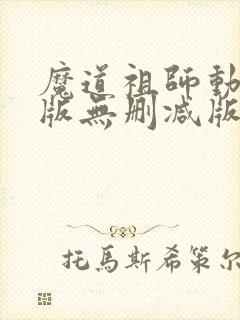 魔道祖師動
版無删减版
托馬斯希策尔